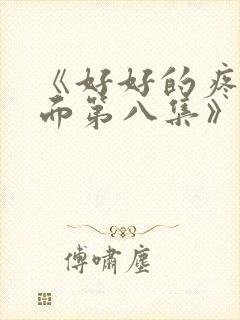 《好好的疼
而第八集》
傅啸尘